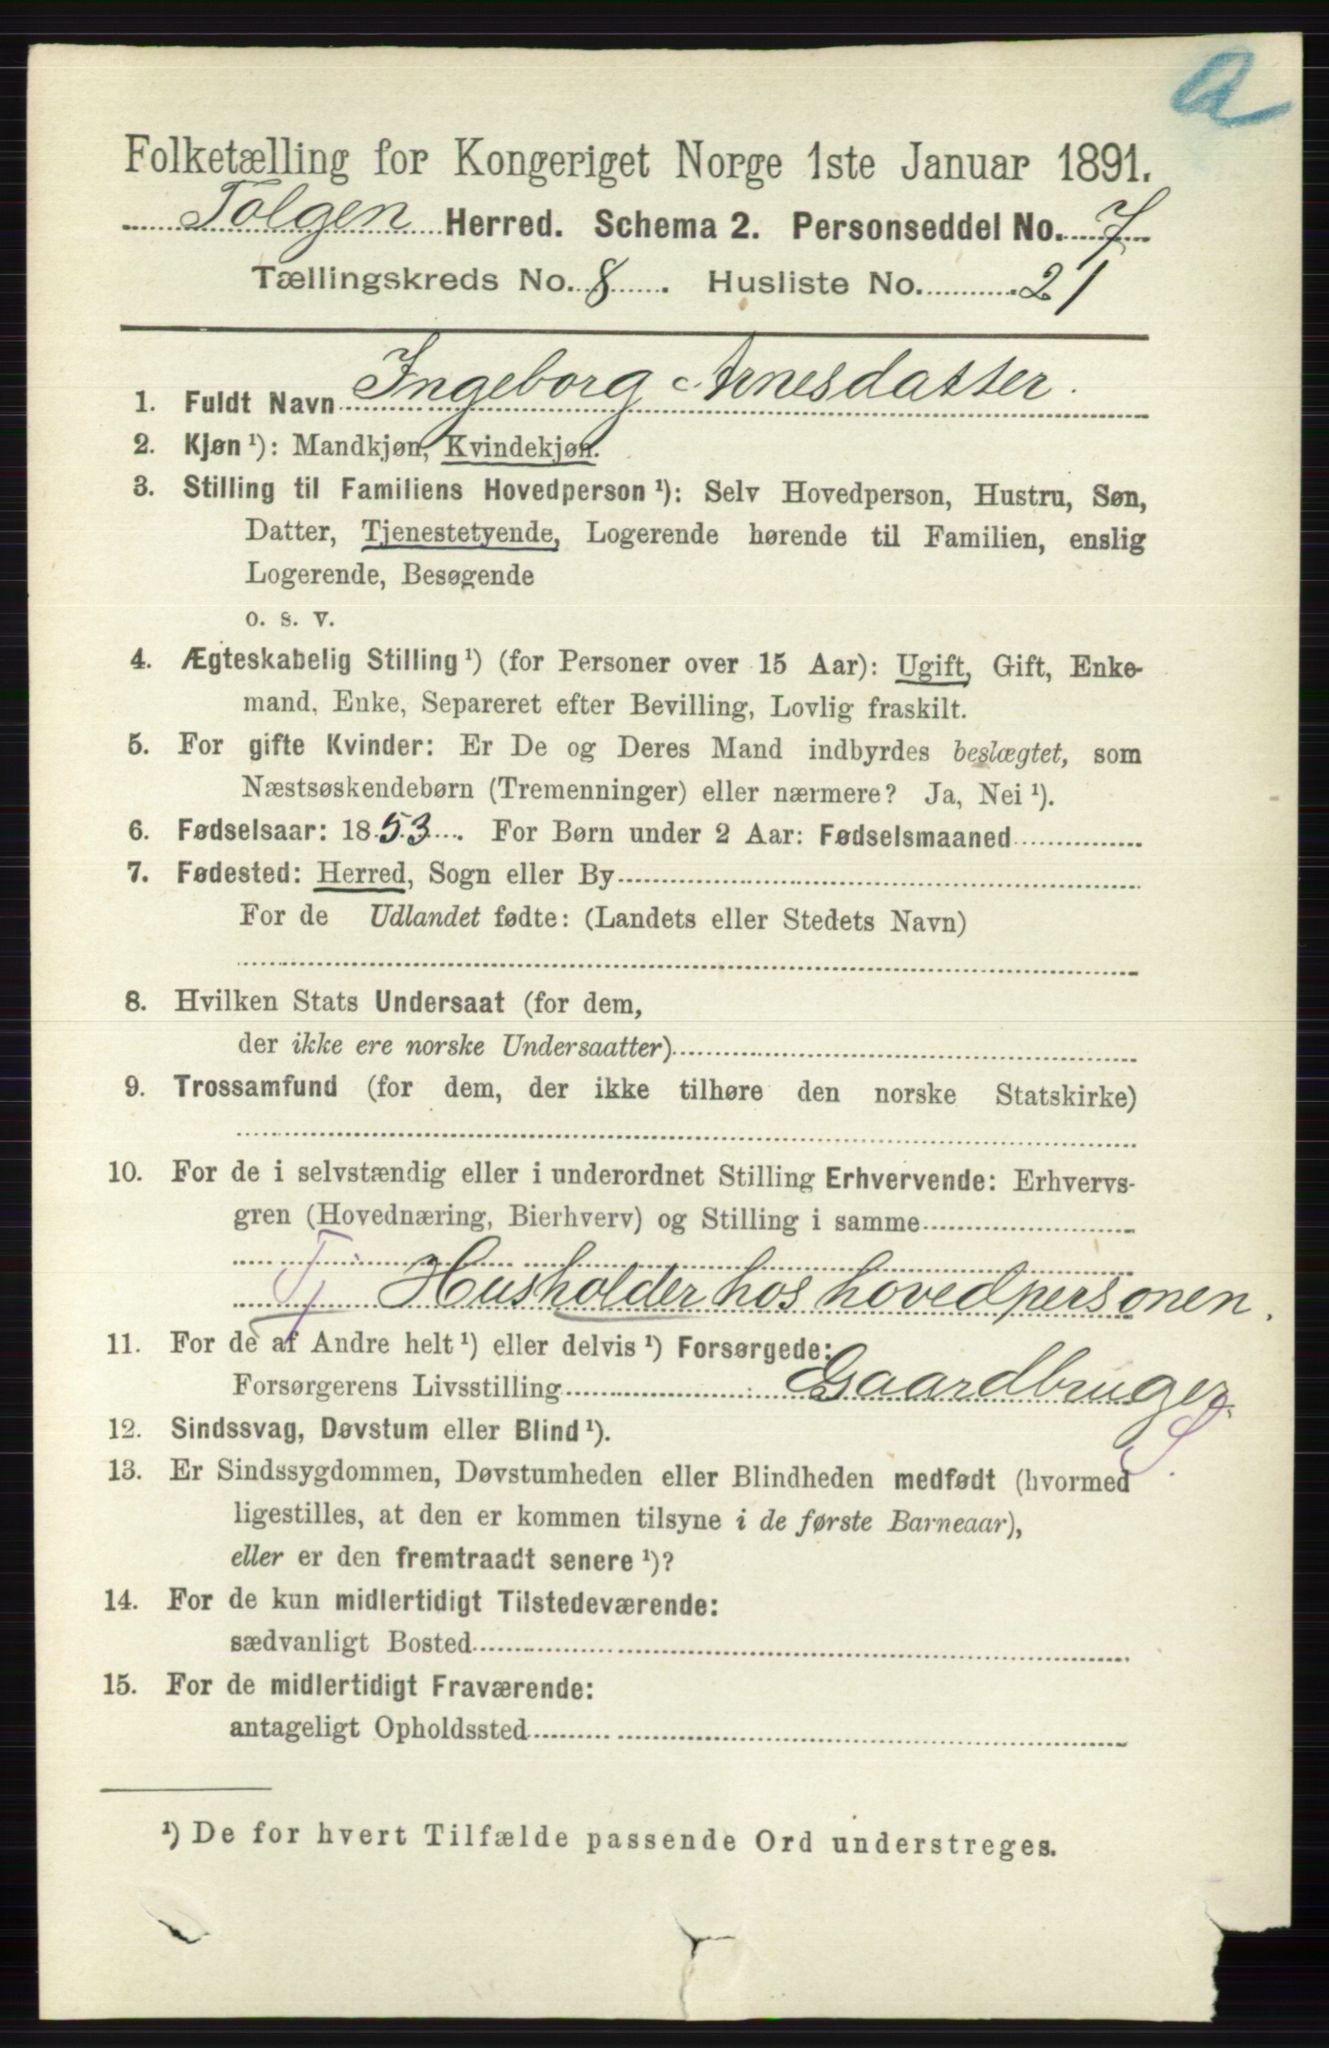 a
Folketælling for Kongeriget Norge 1ste Januar 1891.
Tolgen Herred. Schema 2. Personseddel No. 7
Tællingskreds No. 8. Husliste No. 21
1. Fuldt Navn Ingeborg Arnesdatter.
2. Kjøn ¹): Mandkjøn, Kvindekjøn.
3. Stilling til Familiens Hovedperson ¹): Selv Hovedperson, Hustru, Søn,
Datter, Tjenestetyende, Logerende hørende til Familien, enslig
Logerende, Besøgende
o. s. v.
4. Ægteskabelig Stilling ¹) (for Personer over 15 Aar): Ugift, Gift, Enke-
mand, Enke, Separeret efter Bevilling, Lovlig fraskilt.
5. For gifte Kvinder: Er De og Deres Mand indbyrdes beslægtet, som
Næstsøskendebørn (Tremenninger) eller nærmere? Ja, Nei ¹).
6. Fødselsaar: 1853. For Børn under 2 Aar: Fødselsmaaned
7. Fødested: Herred, Sogn eller By
For de Udlandet fødte: (Landets eller Stedets Navn)
8. Hvilken Stats Undersaat (for dem,
der ikke ere norske Undersaatter)
9. Trossamfund (for dem, der ikke tilhøre den norske Statskirke)
10. For de i selvstændig eller i underordnet Stilling Erhvervende: Erhvervs-
gren (Hovednæring, Bierhverv) og Stilling i samme
Tj Husholder hos hovedpersonen.
11. For de af Andre helt ¹) eller delvis ¹) Forsørgede:
Forsørgerens Livsstilling Gaardbruger.
S.
12. Sindssvag, Døvstum eller Blind ¹).
13. Er Sindssygdommen, Døvstumheden eller Blindheden medfødt (hvormed
ligestilles, at den er kommen tilsyne i de første Barneaar),
eller er den fremtraadt senere ¹)?
14. For de kun midlertidigt Tilstedeværende:
sædvanligt Bosted
15. For de midlertidigt Fraværende:
antageligt Opholdssted
¹) De for hvert Tilfælde passende Ord understreges.